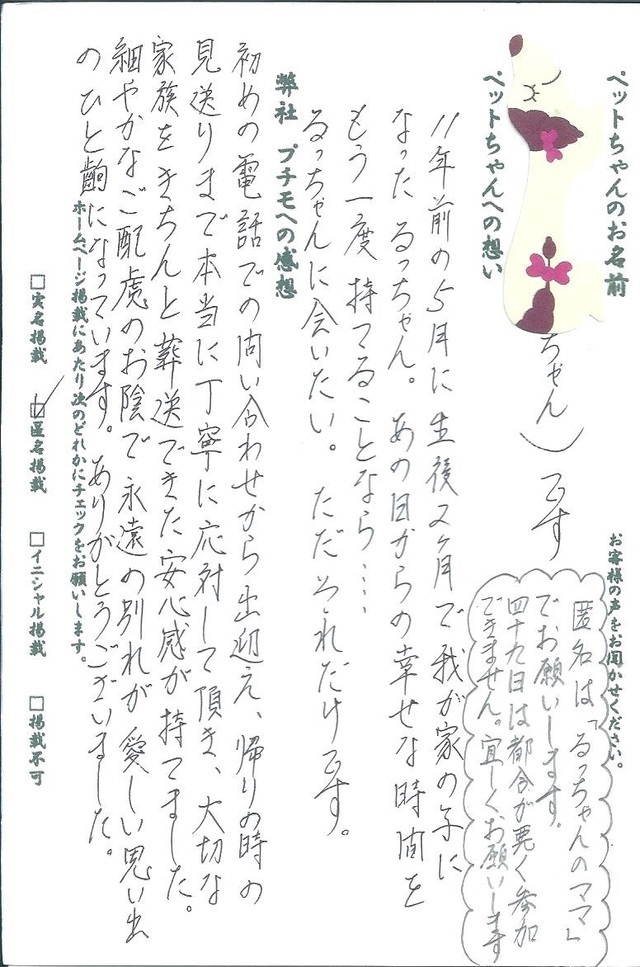 お客様の声をお聞かせください。
ペットちゃんのお名前
ちゃん）です
匿名は「るっちゃんのママ」
でお願いします。
四十九日は都合が悪く参加
できません。宜しくお願いします
ペットちゃんへの想い
11年前の5月に生後2ヶ月で我が家の子に
なった るっちゃん。あの日からの幸せな時間を
もう一度 持てることなら……
るっちゃんに会いたい。ただそれだけです。
弊社 プチモへの感想
初めの電話での問い合わせから出迎え、帰りの時の
見送りまで本当に丁寧に応対して頂き、大切な
家族をきちんと葬送できた安心感が持てました。
細やかなご配慮のお陰で永遠の別れが愛しい思い出
のひと齣になっています。ありがとうございました。
ホームページ掲載にあたり次のどれかにチェックをお願いします。
□実名掲載 ☑匿名掲載 □イニシャル掲載 □掲載不可